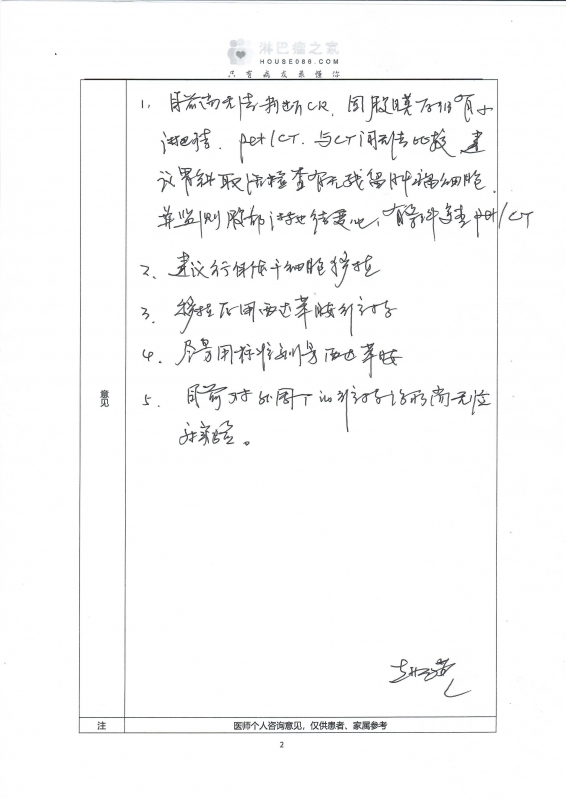 淋巴瘤之家
HOUSE086.COM
只有病友最懂你
1. 目前尚无法判断CR,因腹膜后仍有小
淋巴结, pet/CT 与CT间无法比较 建
议 取活检查有无残留肿瘤细胞,
并监测腹部淋巴结变化,有条件复查pet/CT
2. 建议行自体干细胞移植
3. 移植后用西达苯胺维持
4. 尽量用标准剂量西达苯胺
5. 目前对外周T的维持治疗尚无
经验。
意见
注 医师个人咨询意见,仅供患者、家属参考
2